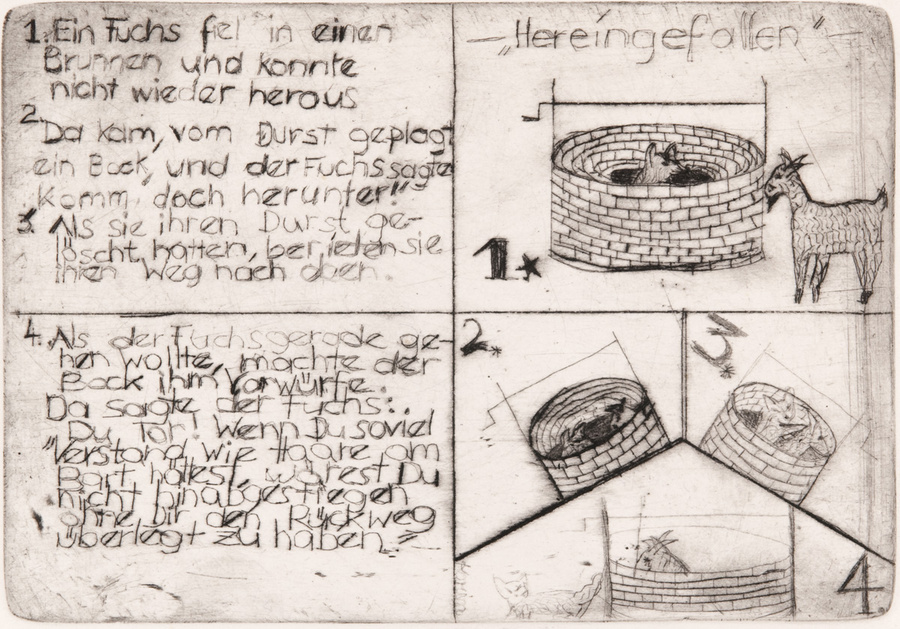 1. Ein Fuchs fiel in einen
Brunnen und konnte
nicht wieder heraus
2.
Da kam, vom Durst geplagt
ein Bock, und der Fuchs sagte
"Komm, doch herunter!"
3. Als sie ihren Durst ge-
löscht, hatten, berieten sie
ihren Weg nach oben.
4. Als der Fuchs gerade ge-
hen wollte, machte der
Bock ihm Vorwürfe.
Da sagte der Fuchs:
"Du Tor! Wenn Du soviel
Verstand wie Haare am
Bart hättest, wärest Du
nicht hinabgestiegen
ohne Dir den Rückweg
überlegt zu haben."
— "Hereingefallen" —
1.
2.
3.
4.